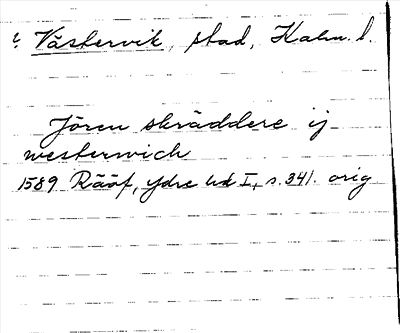 t. Västervik, stad, Kalm. l.
Jören skräddere ij
westerwich
1589 Rääf, Ydre hd I, s. 341. orig